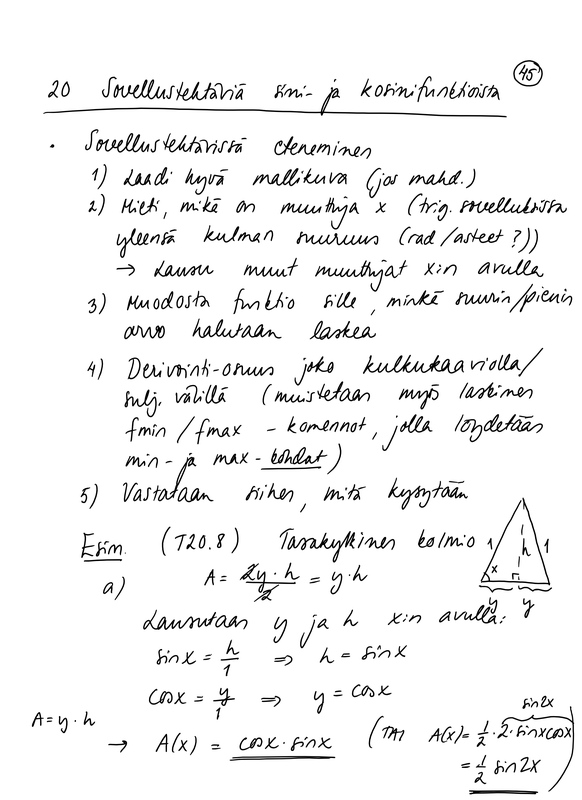 45
20 Sovellustehtäviä sini- ja kosinifunktioista
• Sovellustehtävissä eteneminen
1) Laadi hyvä mallikuva (jos mahd.)
2) Mieti, mikä on muuttuja x (trig. sovelluksissa
yleensä kulman suuruus (rad/asteet?))
→ Lausu muut muuttujat x:n avulla
3) Muodosta funktio sille, minkä suurin/pienin
arvo halutaan laskea
4) Derivointi-osuus joko kulkukaaviolla/
sulj. välillä (muistetaan myös laskimen
fmin/fmax - komennot, jolla löydetään
min- ja max-kohdat)
5) Vastataan siihen, mitä kysytään
Esim. (T20.8) Tasakylkinen kolmio
1 h 1
x
y y
a) A = 2y·h/2 = y·h
Lausutaan y ja h x:n avulla:
sinx = h/1 ⇒ h = sinx
cosx = y/1 ⇒ y = cosx
A=y·h
→ A(x) = cosx·sinx
sin2x
(TAI A(x) = 1/2·2·sinxcosx
= 1/2 sin2x)